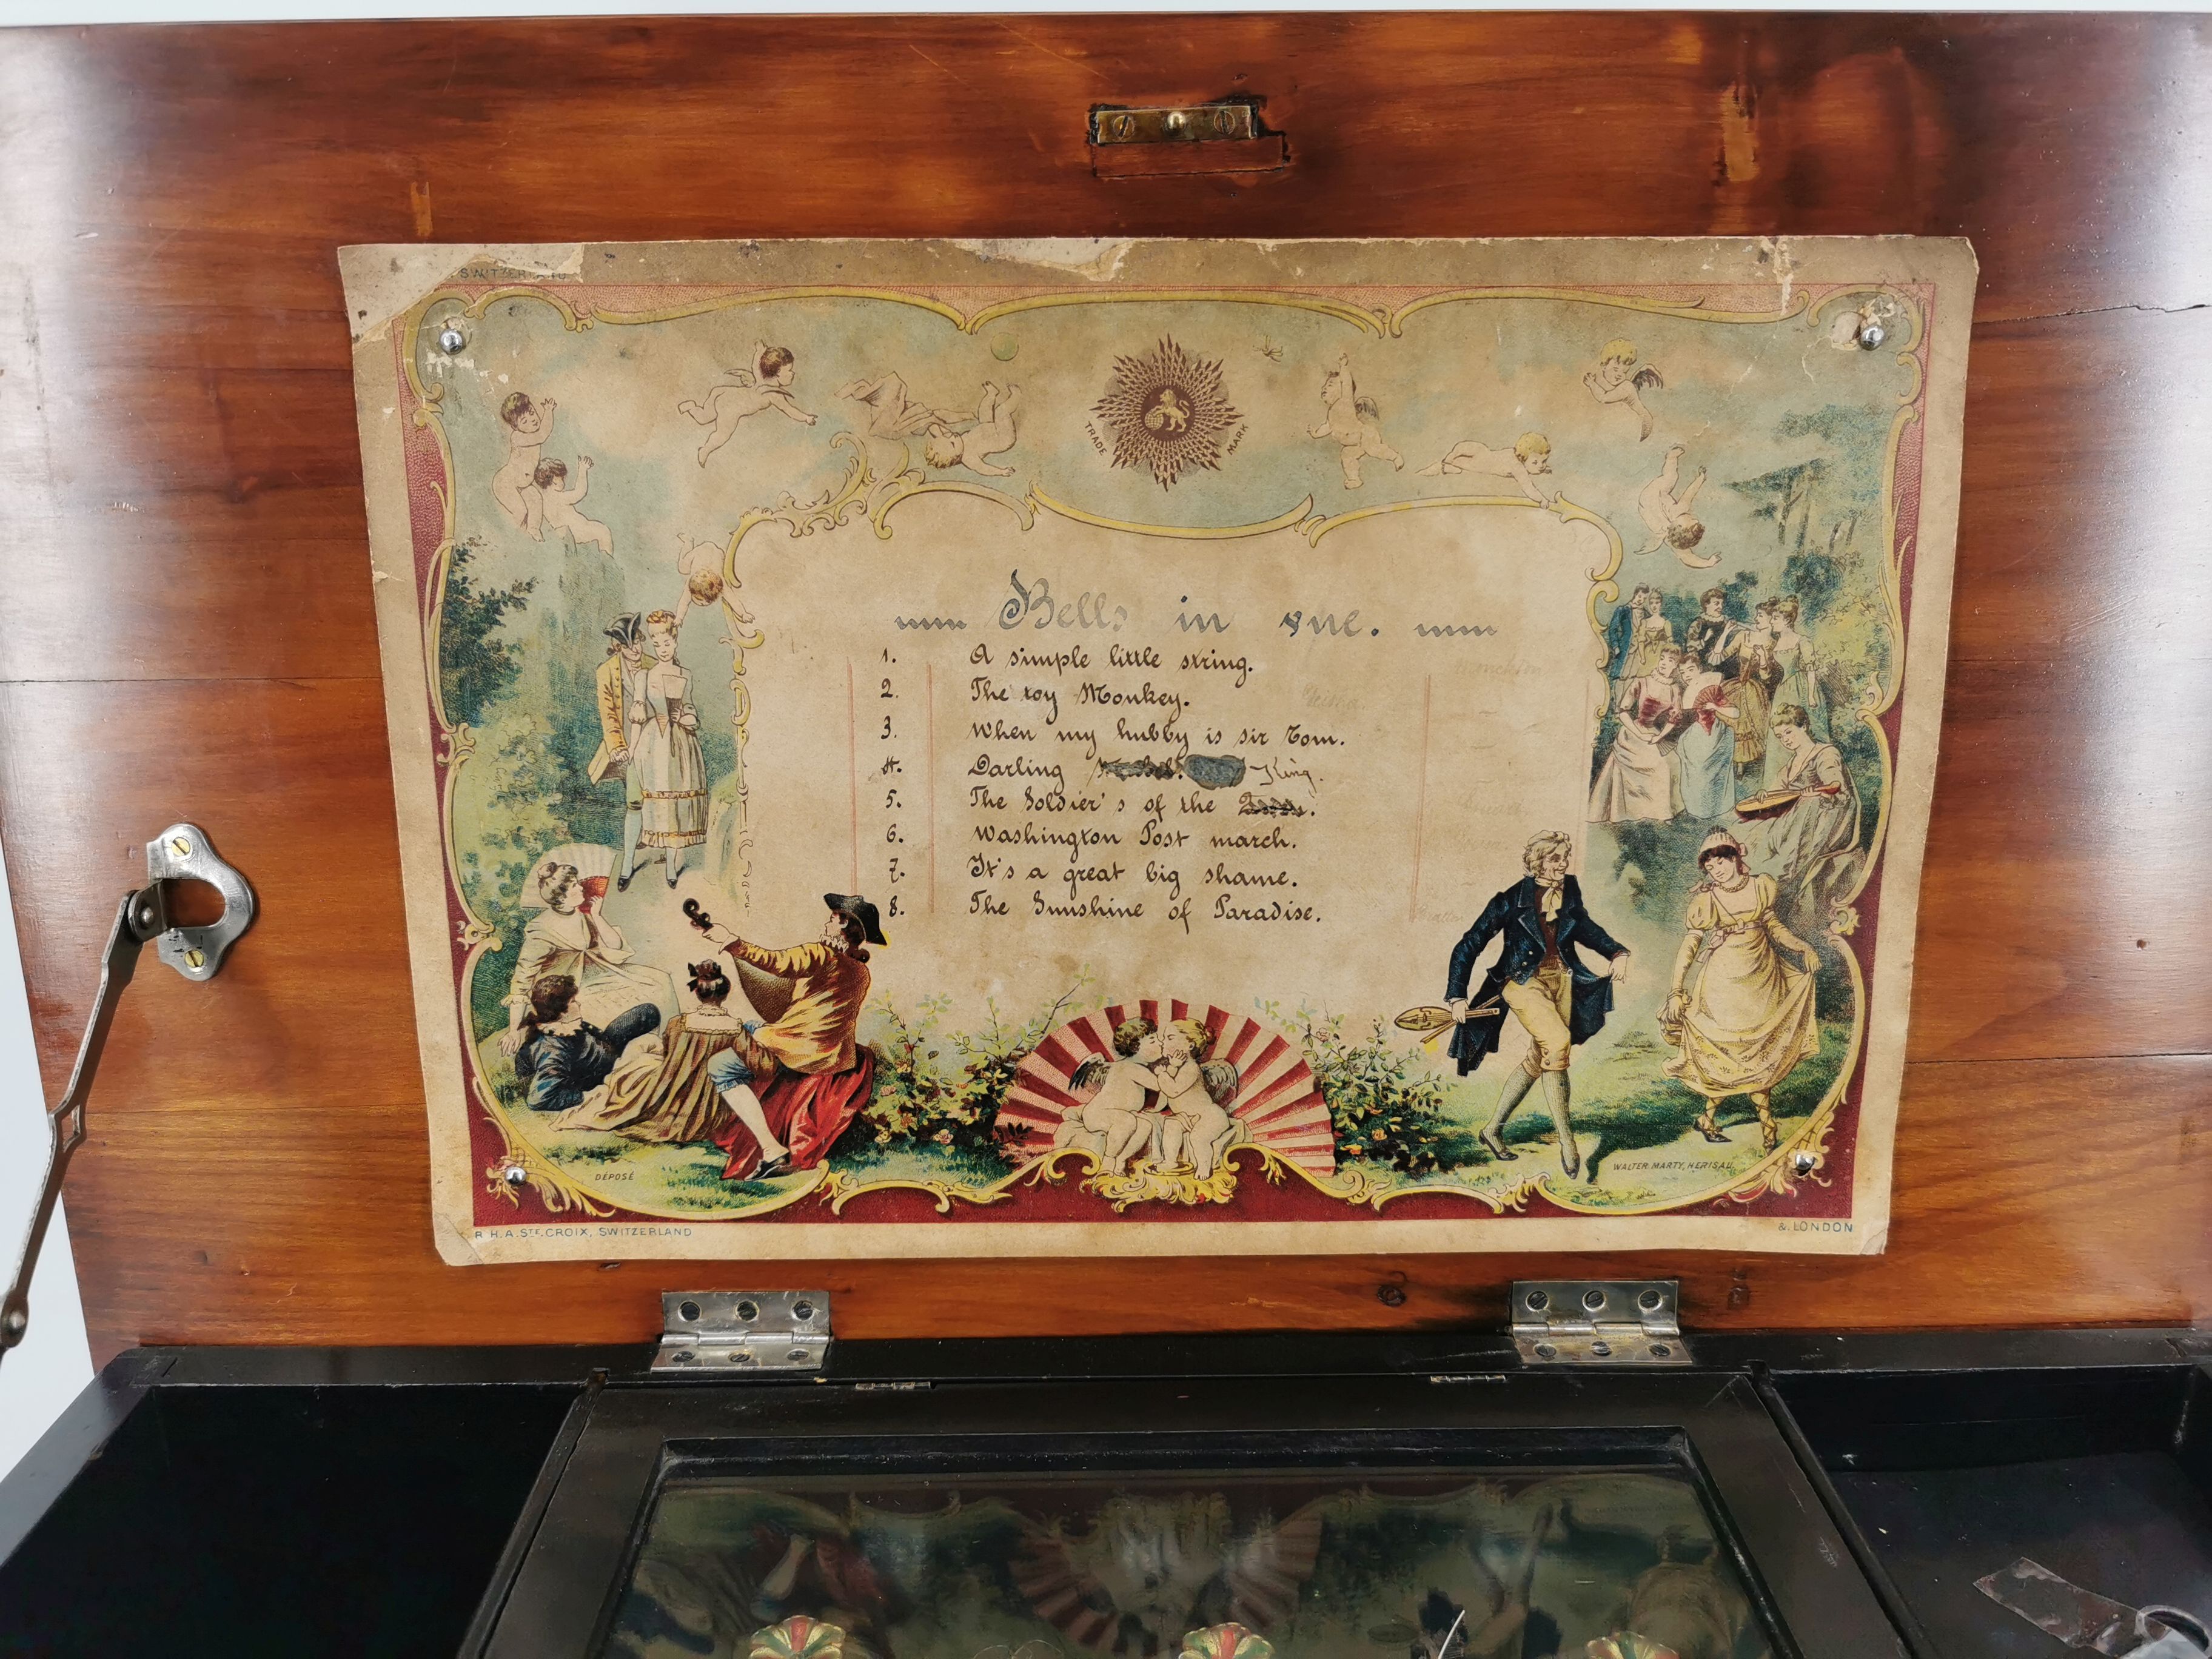 SWITZERLAND
TRADE MARK
Bells in
1. A simple little string.
2. The toy Monkey.
3. When my hubby is sir Tom.
4. Darling King.
5. The Soldier's of the
6. Washington Post march.
7. It's a great big shame.
8. The Sunshine of Paradise.
DÉPOSÉ
WALTER MARTY, HERISAU.
R H. A. STE. CROIX, SWITZERLAND
&. LONDON